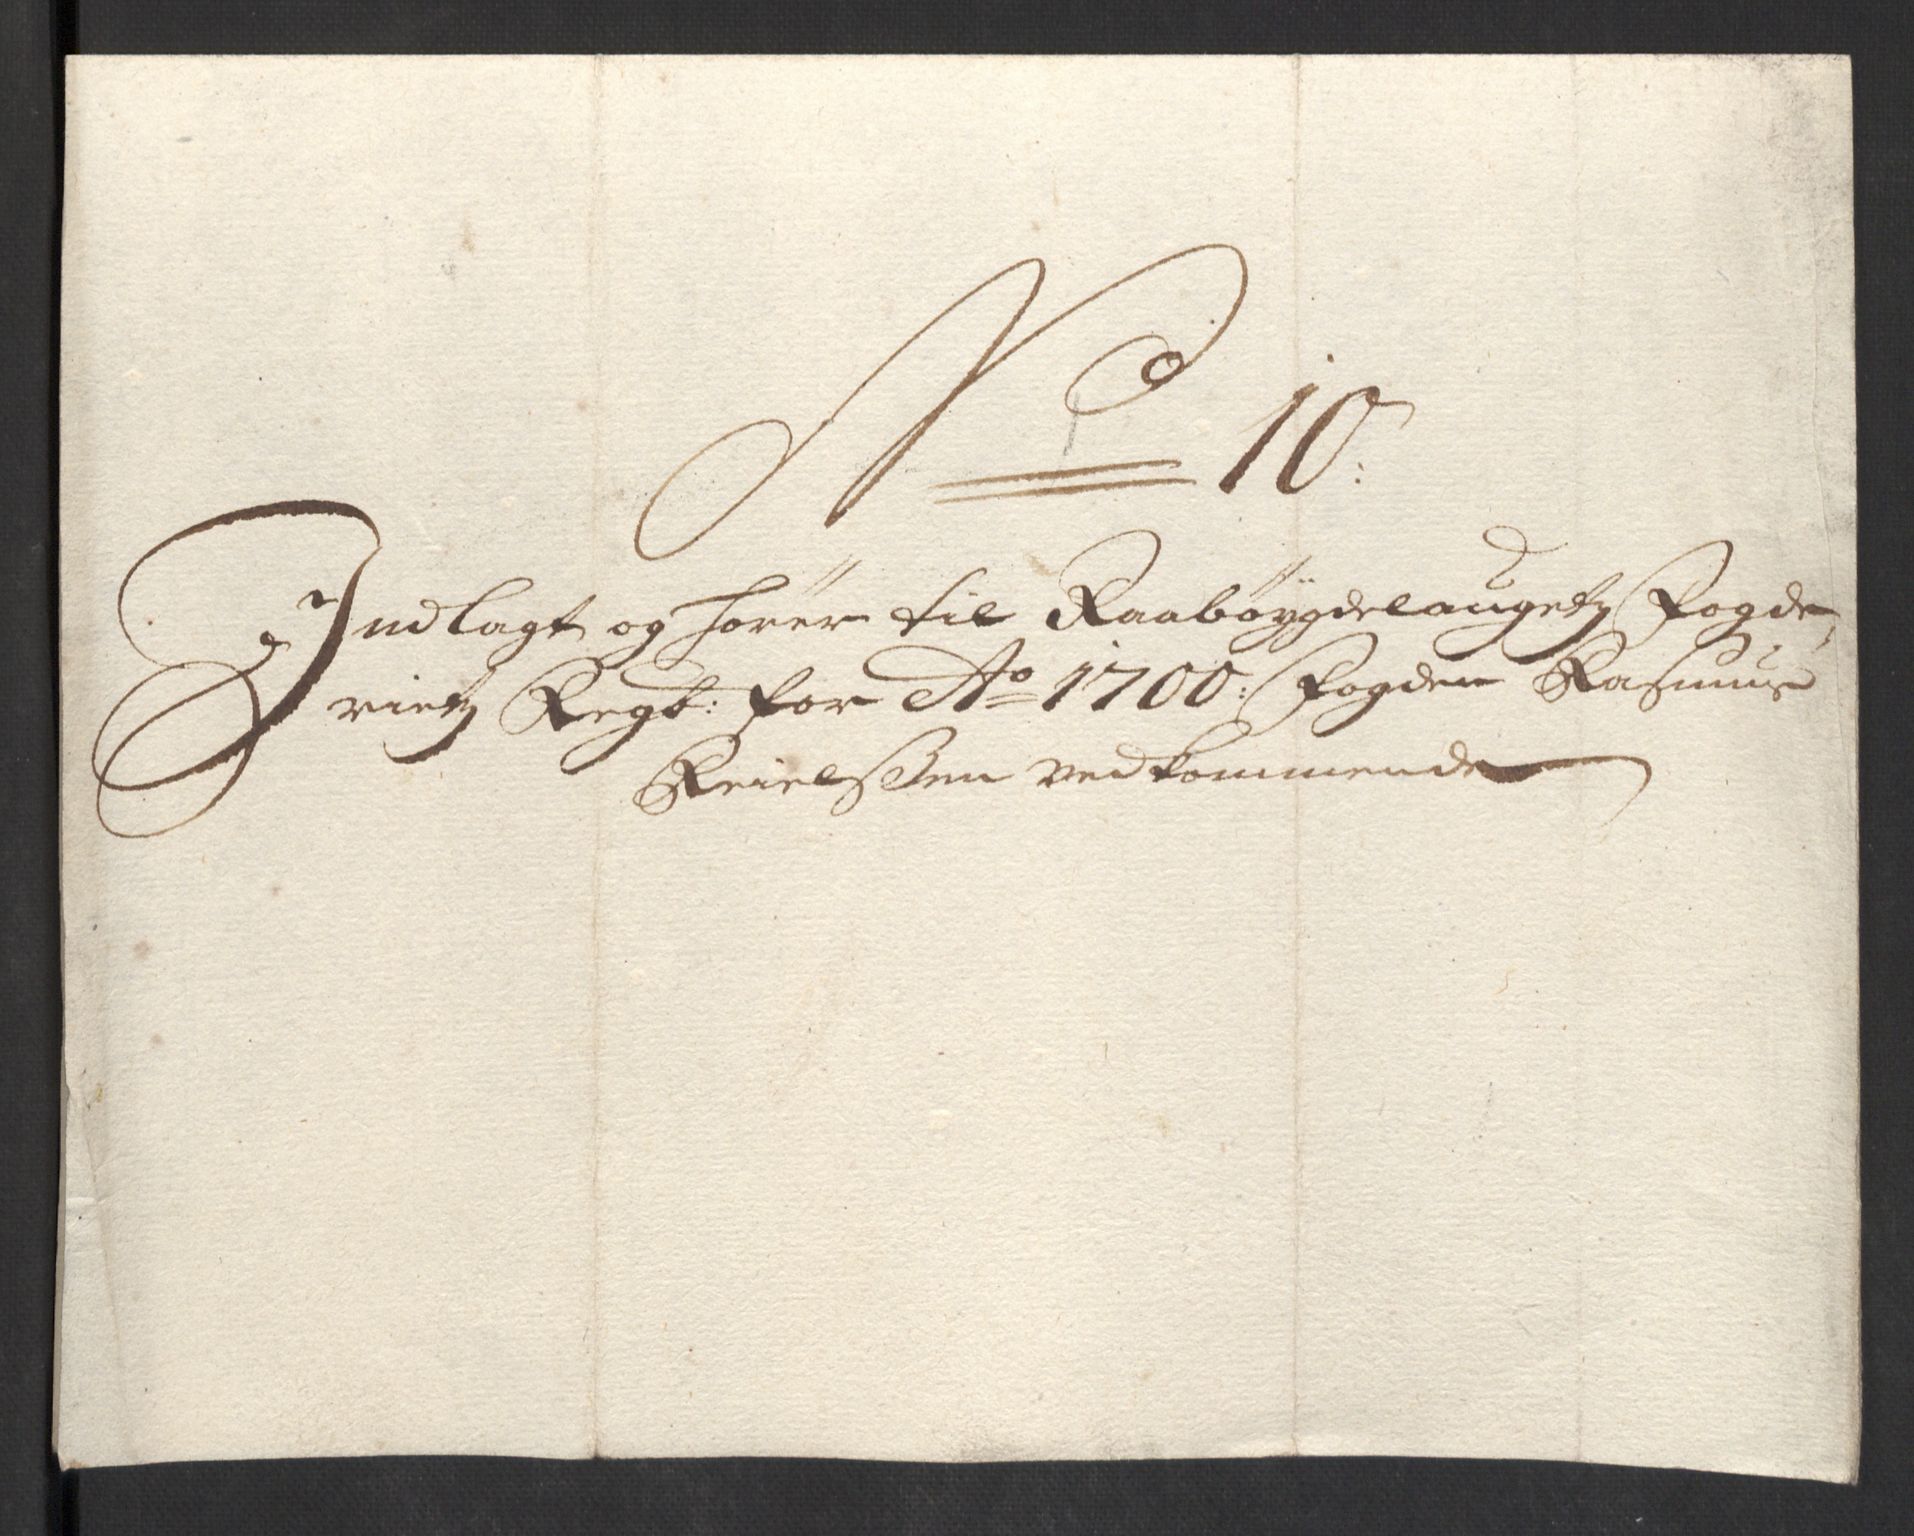 No 10:
Indlagt og hörer til Raabøygdelaugetz Fogde,
rietz Regb: for Ao 1700: Fogden Rasmus
Keielssen vedkommende